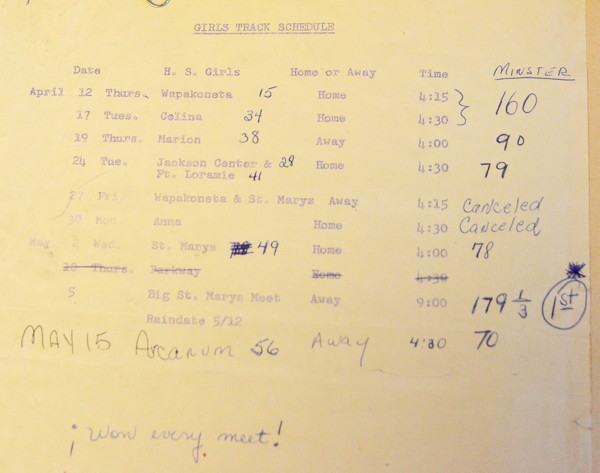 GIRLS TRACK SCHEDULE
Date H. S. Girls Home or Away Time MINSTER
April 12 Thurs. Wapakoneta 15 Home 4:15 160
17 Tues. Celina 34 Home 4:30
19 Thurs. Marion 38 Away 4:00 90
24 Tue. Jackson Center & 28 Home 4:30 79
Ft. Loramie 41
27 Fri. Wapakoneta & St. Marys Away 4:15 Canceled
30 Mon. Anna Home 4:30 Canceled
May 2 Wed. St. Marys 49 Home 4:00 78
10 Thurs. Parkway Home 4:30
5 Big St. Marys Meet Away 9:00 179 1/3 1st
Raindate 5/12
MAY 15 Arcanum 56 Away 4:30 70
¡Won every meet!